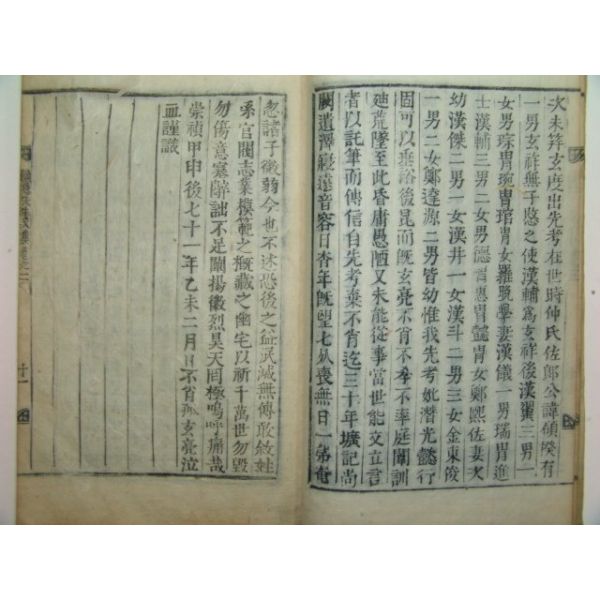 次未筓玄度出先考在世時仲氏佐郎公諱頎揆有
一男玄祥無子愍之使漢輔爲玄祥後漢翼三男一
女男琮胄琬胄琯胄女羅甈擧妻漢儀一男瑞胄進
士漢輔三男二女男德胄惠胄懿胄女鄭熙佐妻次
幼漢傑二男一女漢井一女漢斗二男三女金東俊
一男二女鄭達源二男皆幼惟我先考妣潛光懿行
固可以垂裕後昆而旣玄亮不肖不孝不率庭闈訓
廸荒墜至此昏庸愚陋又未能從事當世能交立言
者以託筆而傳信自先考棄不肖迄三十年壙記尚
闕遺澤寢遠音容日杳年旣望七癃喪無日一第奄
忽諸子微弱今也不述恐後之益泯滅無傳敢敘姓
系官閥志業模範之槪藏之幽宅以祈千萬世勿毁
勿傷意塞辭詘不足闡揚徽烈昊天罔極嗚呼痛哉
崇禎甲申後七十一年乙未二月日不肖孤玄亮泣
血謹識
十一